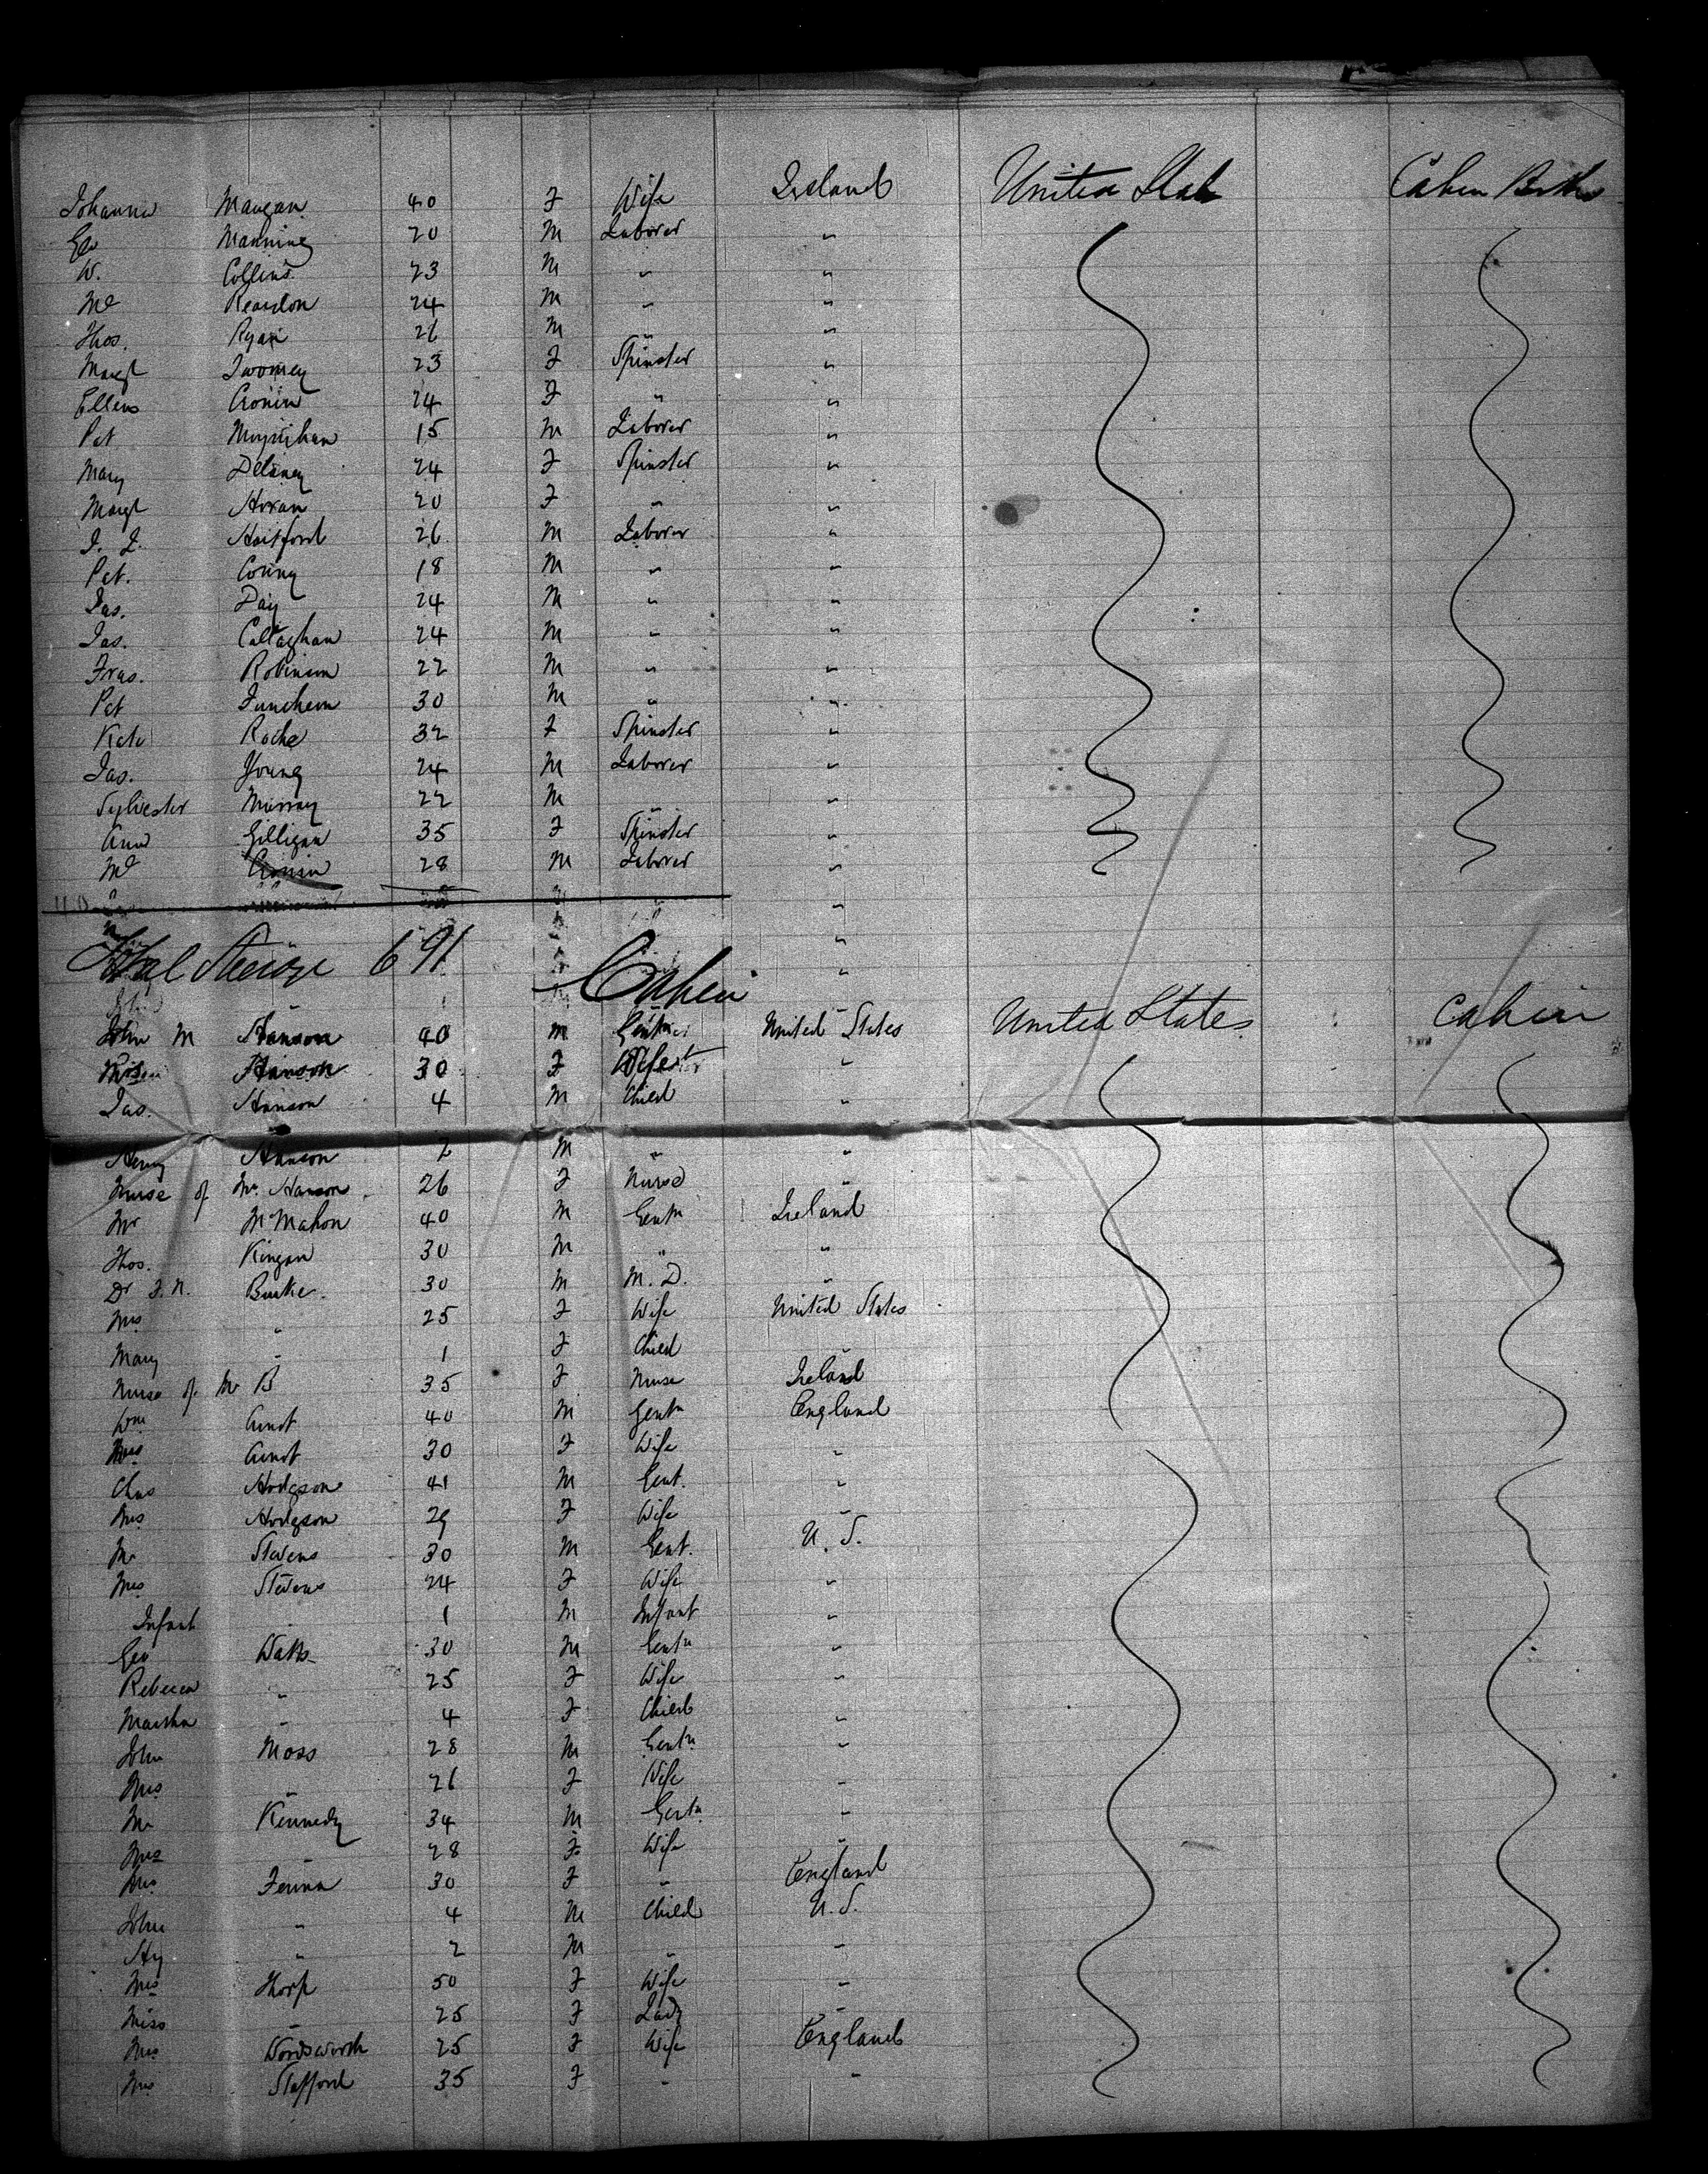 Johanna Mangan 40 F Wife Ireland United States Cabin Boths
Geo Manning 20 M Laborer "
W. Collins 23 M " "
Ml Reardon 24 M " "
Thos. Ryan 26 M " "
Margt Twomey 23 F Spinster "
Ellen Cronin 24 F " "
Pat Moynihan 15 M Laborer "
Mary Delaney 24 F Spinster "
Margt Horan 20 F " "
J. J. Haitford 26 M Laborer "
Pat. 18 M " "
Jas. Day 24 M " "
Jas. Callaghan 24 M " "
Fras. Robinson 22 M " "
Pat Luncheon 30 M " "
Kate Roche 32 F Spinster "
Jas. Young 24 M Laborer "
Sylvester Murray 22 M " "
Ann Gilligan 35 F Spinster "
Ml Cronin 28 M Laborer "
Total Steerage 691 Cabin
John M Hanson 40 M Gentn United States United States Cabin
Mrs Hanson 30 F Wife "
Jas. Hanson 4 M Child "
Henry Hanson 2 M " "
Nurse of Mr. Hanson 26 F Nurse "
Mr McMahon 40 M Gentn Ireland
Thos. Kingan 30 M " "
Dr J. N. Burke 30 M M. D. "
Mrs " 25 F Wife United States
Mary " 1 F Child "
Nurse of Mr B 35 F Nurse Ireland
Wm Arnot 40 M Gentn England
Mrs Arnot 30 F Wife "
Chas Hodgson 41 M Gent. "
Mrs Hodgson 29 F Wife "
Mr Stevens 30 M Gent. U. S.
Mrs Stevens 24 F Wife "
Infant " 1 M Infant "
Geo Watts 30 M Gentn "
Rebecca " 25 F Wife "
Martha " 4 F Child "
John Moss 28 M Gentn "
Mrs " 26 F Wife "
Mr Kennedy 34 M Gentn "
Mrs " 28 F Wife "
Mrs 30 F " England
John " 4 M Child U. S.
Hy " 2 M " "
Mrs Thorp 50 F Wife "
Miss " 25 F Lady "
Mrs Wordsworth 25 F Wife England
Mrs Stafford 35 F " "